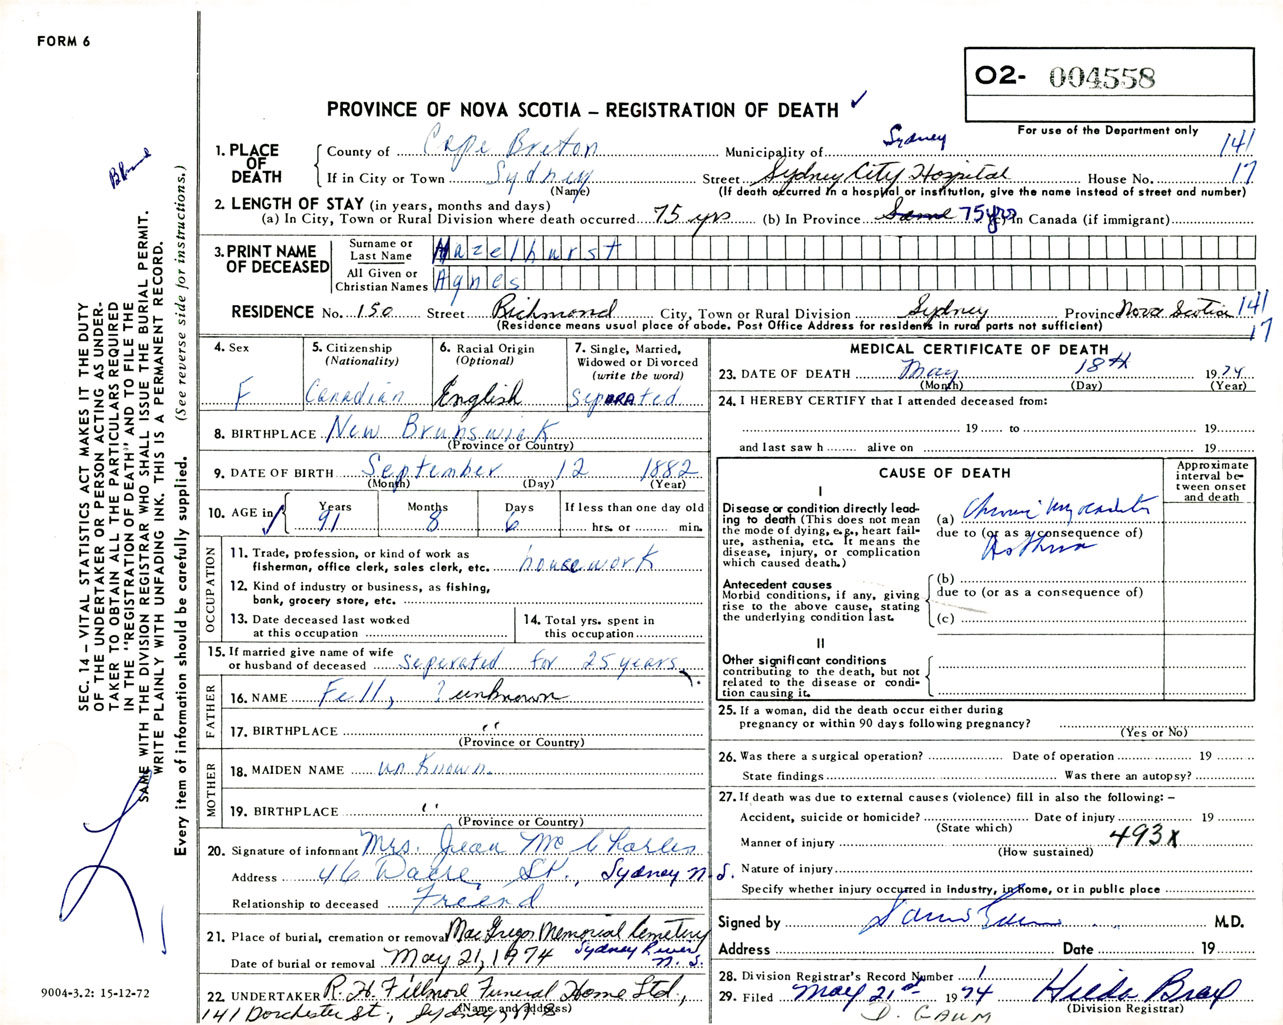 FORM 6
O2- 004558
PROVINCE OF NOVA SCOTIA – REGISTRATION OF DEATH ✓
For use of the Department only
1. PLACE OF DEATH
County of Cape Breton Municipality of Sydney 141
If in City or Town Sydney Street Sydney City Hospital House No. 17
(Name) (If death occurred in a hospital or institution, give the name instead of street and number)
2. LENGTH OF STAY (in years, months and days)
(a) In City, Town or Rural Division where death occurred 75 yrs (b) In Province Same 75 yrs (c) In Canada (if immigrant)
3. PRINT NAME OF DECEASED
Surname or Last Name Hazelhurst
All Given or Christian Names Agnes
RESIDENCE No. 150 Street Richmond City, Town or Rural Division Sydney Province Nova Scotia 141
(Residence means usual place of abode. Post Office Address for residents in rural parts not sufficient) 17
4. Sex
F
5. Citizenship
(Nationality)
Canadian
6. Racial Origin
(Optional)
English
7. Single, Married,
Widowed or Divorced
(write the word)
Separated
8. BIRTHPLACE New Brunswick
(Province or Country)
9. DATE OF BIRTH September 12 1882
(Month) (Day) (Year)
10. AGE in Years Months Days If less than one day old
✓ 91 8 6 hrs. or min.
OCCUPATION
11. Trade, profession, or kind of work as
fisherman, office clerk, sales clerk, etc. housework
12. Kind of industry or business, as fishing,
bank, grocery store, etc.
13. Date deceased last worked
at this occupation
14. Total yrs. spent in
this occupation
15. If married give name of wife
or husband of deceased seperated for 25 years
FATHER
16. NAME Fell, ? unknown
17. BIRTHPLACE "
(Province or Country)
MOTHER
18. MAIDEN NAME unknown
19. BIRTHPLACE "
(Province or Country)
20. Signature of informant Mrs. Jean McCharles
Address 46 Dacre St., Sydney N.S.
Relationship to deceased Freend
21. Place of burial, cremation or removal MacGregor Memorial Cemetery
Sydney River N.S.
Date of burial or removal May 21, 1974
22. UNDERTAKER R. H. Fillmore Funeral Home Ltd.,
(Name and address)
141 Dorchester St., Sydney, N.S
MEDICAL CERTIFICATE OF DEATH
23. DATE OF DEATH May 18th 1974
(Month) (Day) (Year)
24. I HEREBY CERTIFY that I attended deceased from:
19 to 19
and last saw h alive on 19
CAUSE OF DEATH
Approximate
interval be-
tween onset
and death
I
Disease or condition directly lead-
ing to death (This does not mean
the mode of dying, e.g., heart fail-
ure, asthenia, etc. It means the
disease, injury, or complication
which caused death.)
(a) Chronic Myocarditis
due to (or as a consequence of)
Asthma
Antecedent causes
Morbid conditions, if any, giving
rise to the above cause, stating
the underlying condition last.
(b)
due to (or as a consequence of)
(c)
II
Other significant conditions
contributing to the death, but not
related to the disease or condi-
tion causing it.
25. If a woman, did the death occur either during
pregnancy or within 90 days following pregnancy?
(Yes or No)
26. Was there a surgical operation? Date of operation 19
State findings Was there an autopsy?
27. If death was due to external causes (violence) fill in also the following: –
Accident, suicide or homicide? Date of injury 19
(State which)
Manner of injury 493X
(How sustained)
Nature of injury
Specify whether injury occurred in Industry, in home, or in public place
Signed by M.D.
Address Date 19
28. Division Registrar's Record Number 1
29. Filed May 21st 1974 Hilda Bray
(Division Registrar)
D. GAUM
SEC. 14 – VITAL STATISTICS ACT MAKES IT THE DUTY
OF THE UNDERTAKER OR PERSON ACTING AS UNDER-
TAKER TO OBTAIN ALL THE PARTICULARS REQUIRED
IN THE "REGISTRATION OF DEATH" AND TO FILE THE
SAME WITH THE DIVISION REGISTRAR WHO SHALL ISSUE THE BURIAL PERMIT.
WRITE PLAINLY WITH UNFADING INK. THIS IS A PERMANENT RECORD.
Every item of information should be carefully supplied. (See reverse side for instructions.)
9004-3.2: 15-12-72